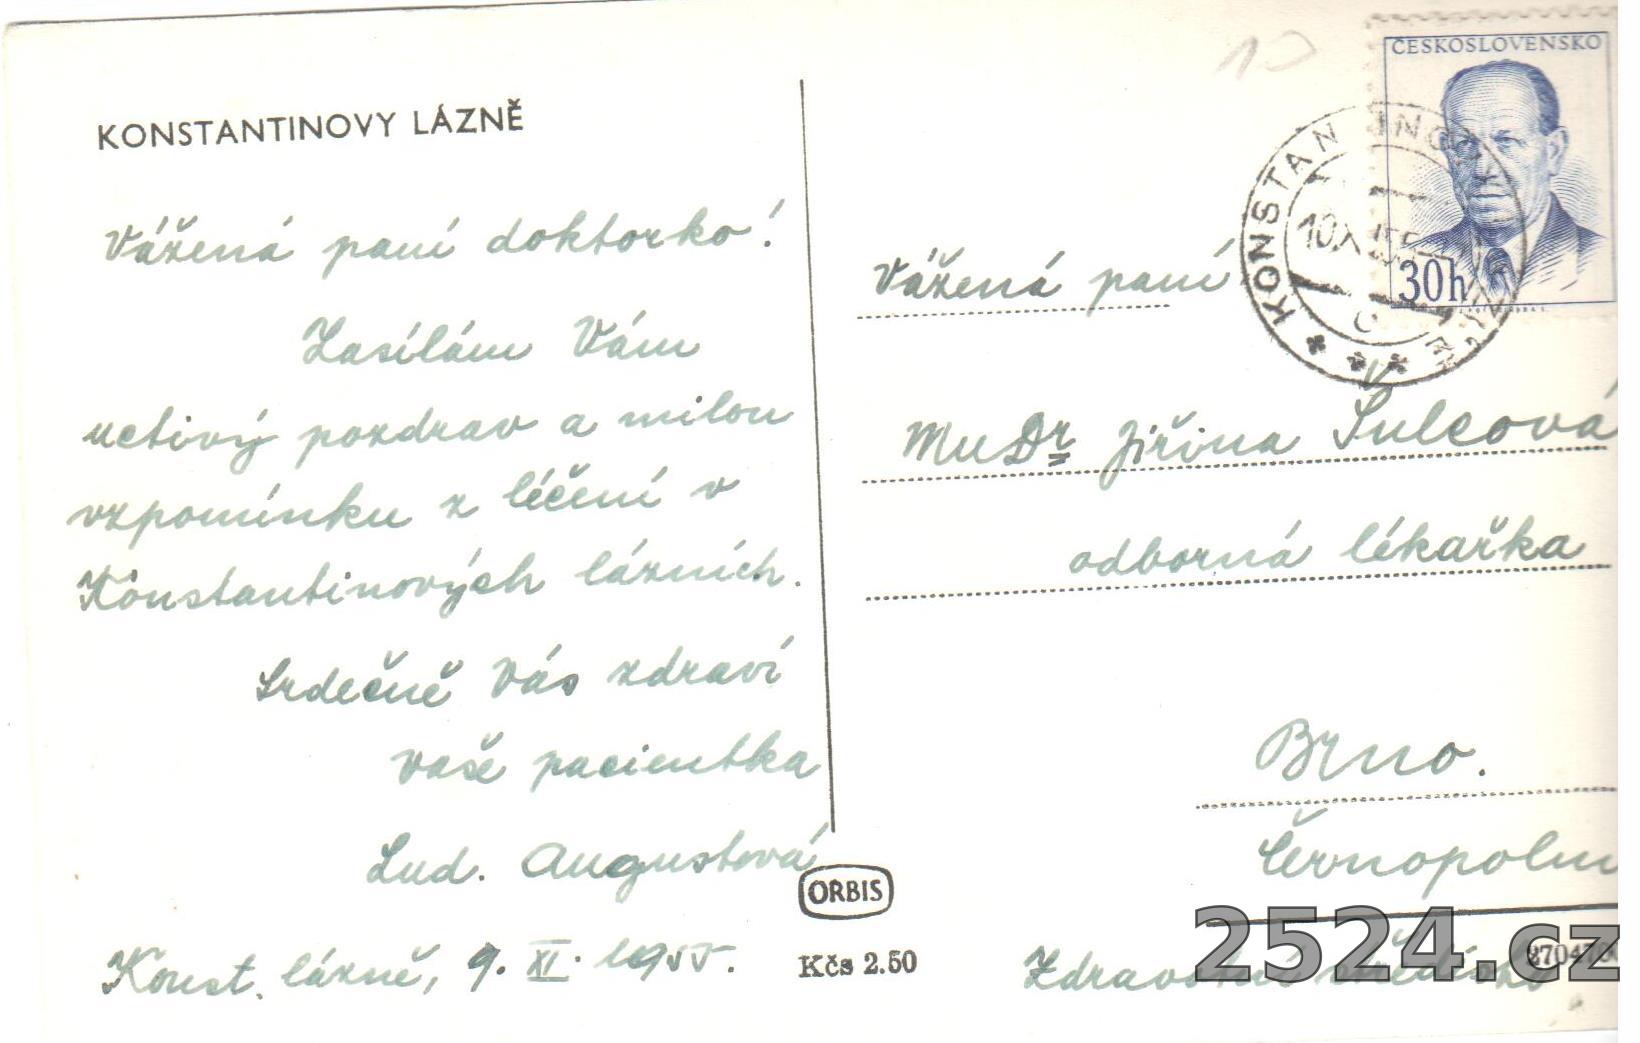 KONSTANTINOVY LÁZNĚ
Vážená paní doktorko!
Zasílám Vám
uctivý pozdrav a milou
vzpomínku z léčení v
Konstantinových lázních.
Srdečně Vás zdraví
vaše pacientka
Lud. Augustová
Konst. lázně, 9. XI. 1955.
ORBIS
Kčs 2.50
ČESKOSLOVENSKO
30h
Vážená paní
MUDr Jiřina Šulcová
odborná lékařka
Brno.
Černopolní
Zdravotní středisko
2524.cz